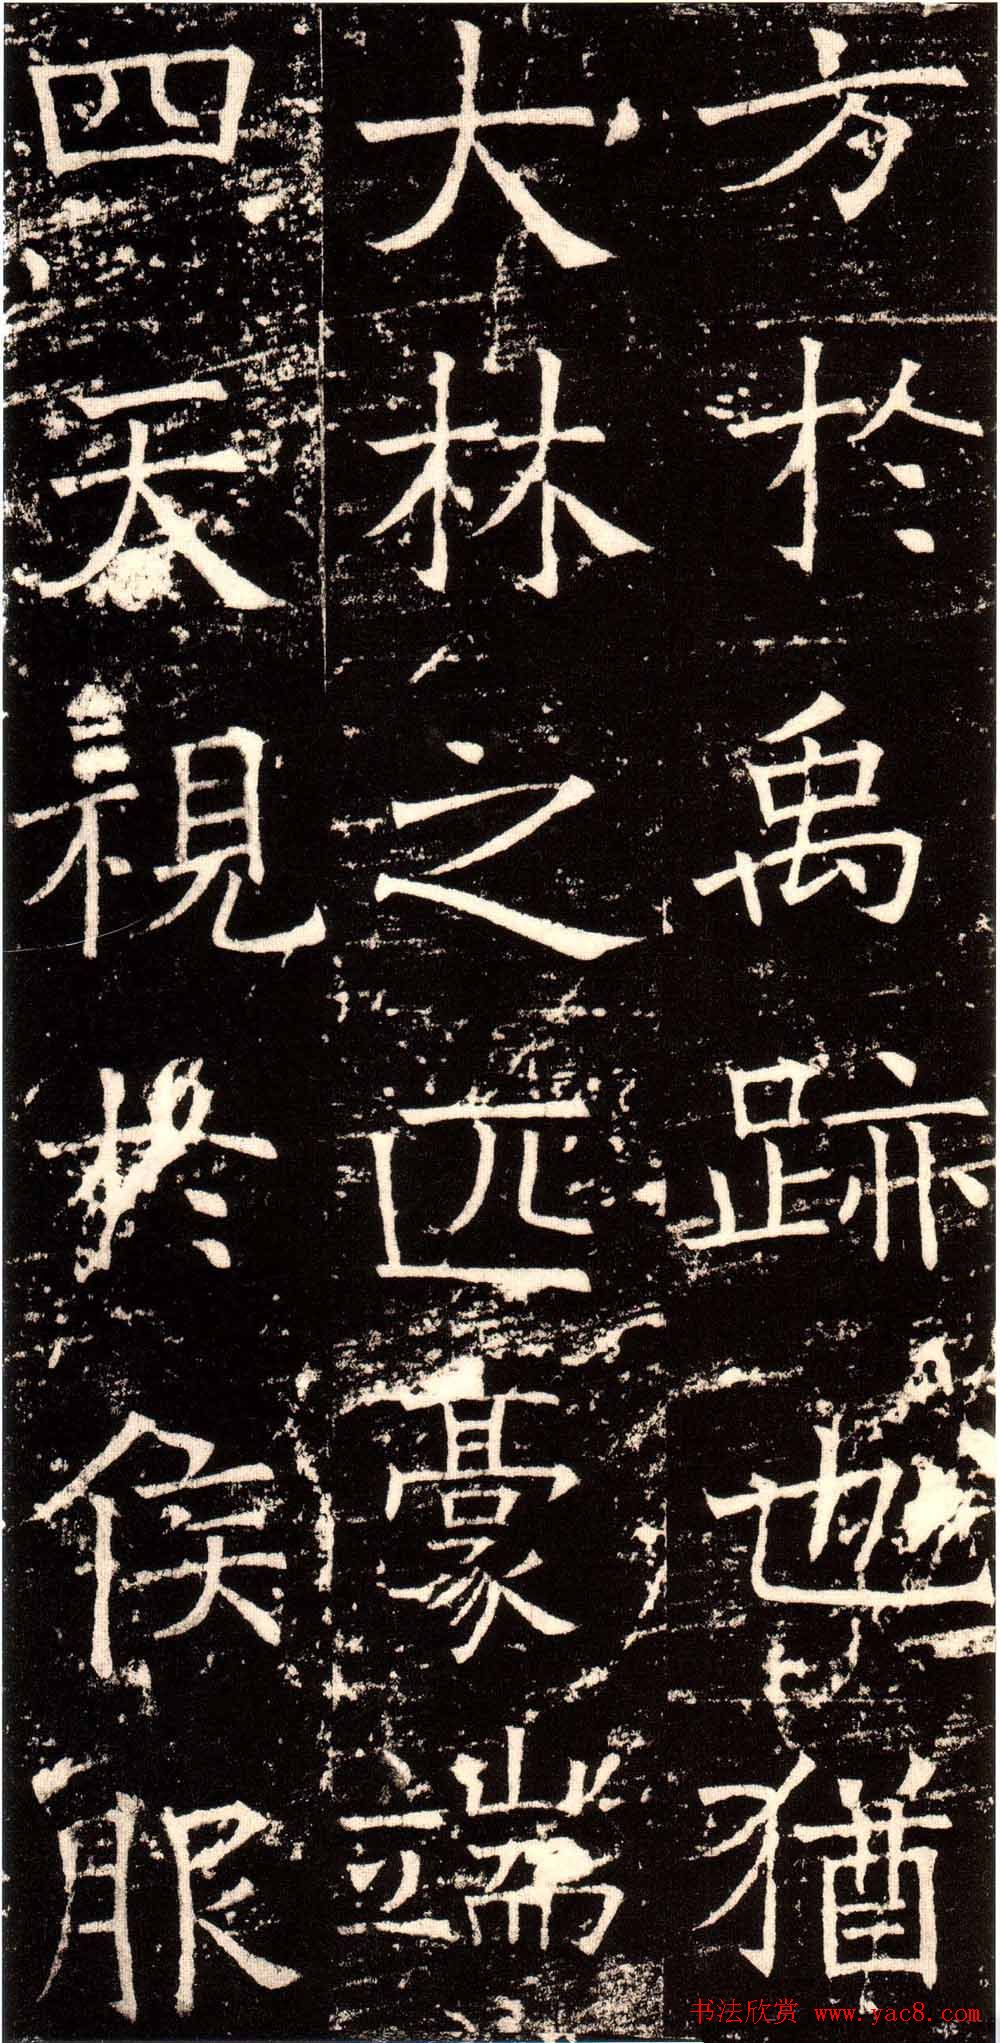 方於禹跡也猶
大林之匹豪端
四天視於侯服
书法欣赏 www.yac8.com